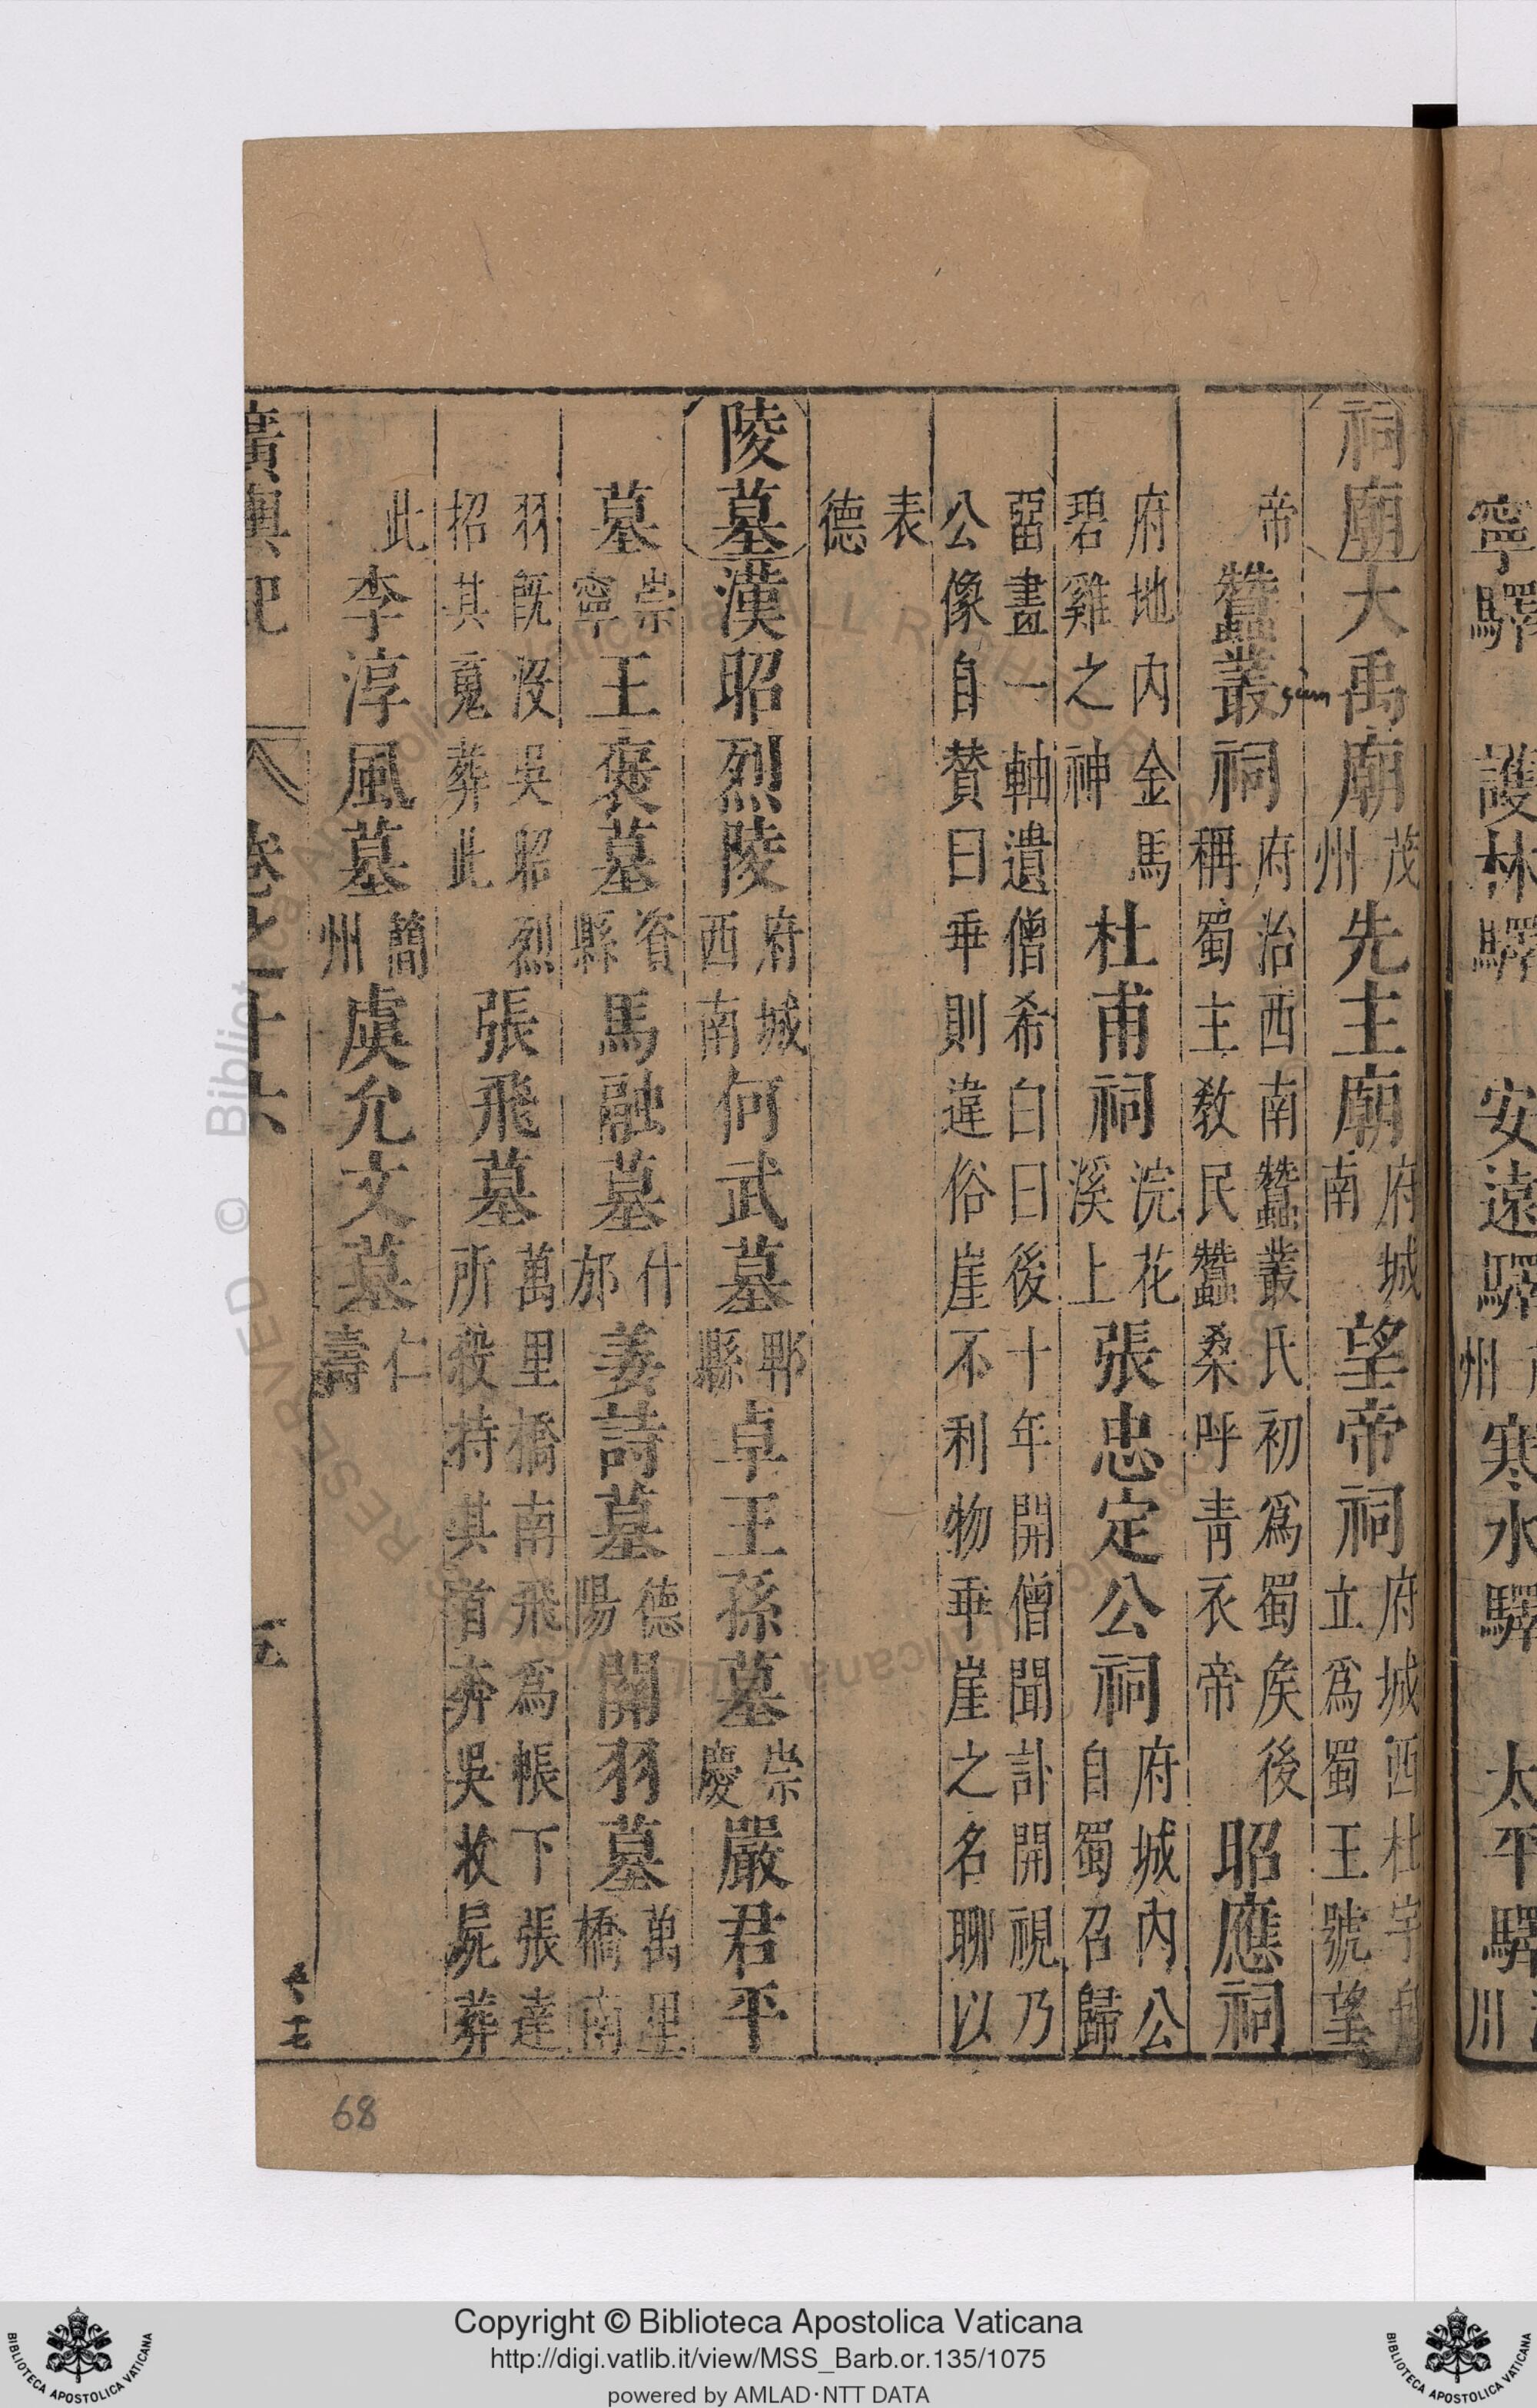 寧驛 護林驛 安遠驛 州 寒水驛 太平驛 川
祠廟 大禹廟 茂州 先主廟 府城南 望帝祠 府城西杜宇自立爲蜀王號望
帝 蠶叢祠 府治西南蠶叢氏初爲蜀矦後稱蜀主敎民蠶桑呼靑衣帝 昭應祠
府地內金馬碧雞之神 杜甫祠 浣花溪上 張忠定公祠 府城內公自蜀召歸
畱畫一軸遺僧希白曰後十年開僧聞訃開視乃公像自贊曰乖則違俗崖不利物乖崖之名聊以
表德
陵墓 漢昭烈陵 府城西南 何武墓 郫縣 卓王孫墓 崇慶 嚴君平
墓 崇寧 王褒墓 資縣 馬融墓 什邡 姜詩墓 德陽 關羽墓 萬里橋南
羽旣沒吳昭烈招其䰟葬此 張飛墓 萬里橋南飛爲帳下張達所殺持其首奔吳收屍葬
此 李淳風墓 簡州 虞允文墓 仁壽
廣輿記 卷之十六 五
68
Copyright © Biblioteca Apostolica Vaticana
http://digi.vatlib.it/view/MSS_Barb.or.135/1075
powered by AMLAD·NTT DATA
BIBLIOTECA APOSTOLICA VATICANA
BIBLIOTECA APOSTOLICA VATICANA